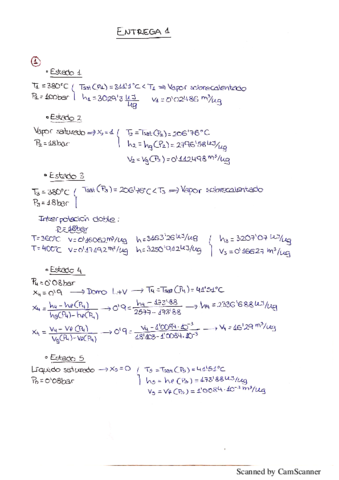 ENTREGA 1
①
• Estado 1
T₁ = 380°C { Tsat(P₁) = 311'1°C < T₁ ⇒ Vapor sobrecalentado
P₁ = 100bar h₁ = 3029'3 kJ/kg v₁ = 0'02486 m³/kg
• Estado 2
Vapor saturado → x₂ = 1 { T₂ = Tsat(P₂) = 206'76°C
P₂ = 18bar h₂ = hg(P₂) = 2796'58 kJ/kg
v₂ = vg(P₂) = 0'112498 m³/kg
• Estado 3
T₃ = 380°C { Tsat(P₃) = 206'76°C < T₃ ⇒ Vapor sobrecalentado
P₃ = 18bar
Interpolación doble:
P = 18bar
T = 360°C v = 0'16062 m³/kg h = 3163'26 kJ/kg { h₃ = 3207'07 kJ/kg
T = 400°C v = 0'17192 m³/kg h = 3250'912 kJ/kg v₃ = 0'16627 m³/kg
• Estado 4
P₄ = 0'08bar
x₄ = 0'9 → Domo L+V → T₄ = Tsat(P₄) = 41'51°C
x₄ = h₄ - hf(P₄) / hg(P₄) - hf(P₄) → 0'9 = h₄ - 173'88 / 2577 - 173'88 → h₄ = 2336'688 kJ/kg
x₄ = v₄ - vf(P₄) / vg(P₄) - vf(P₄) → 0'9 = v₄ - 1'0084·10⁻³ / 18'103 - 1'0084·10⁻³ → v₄ = 16'29 m³/kg
• Estado 5
Líquido saturado → x₅ = 0 { T₅ = Tsat(P₅) = 41'51°C
P₅ = 0'08bar h₅ = hf(P₅) = 173'88 kJ/kg
v₅ = vf(P₅) = 1'0084·10⁻³ m³/kg
Scanned by CamScanner